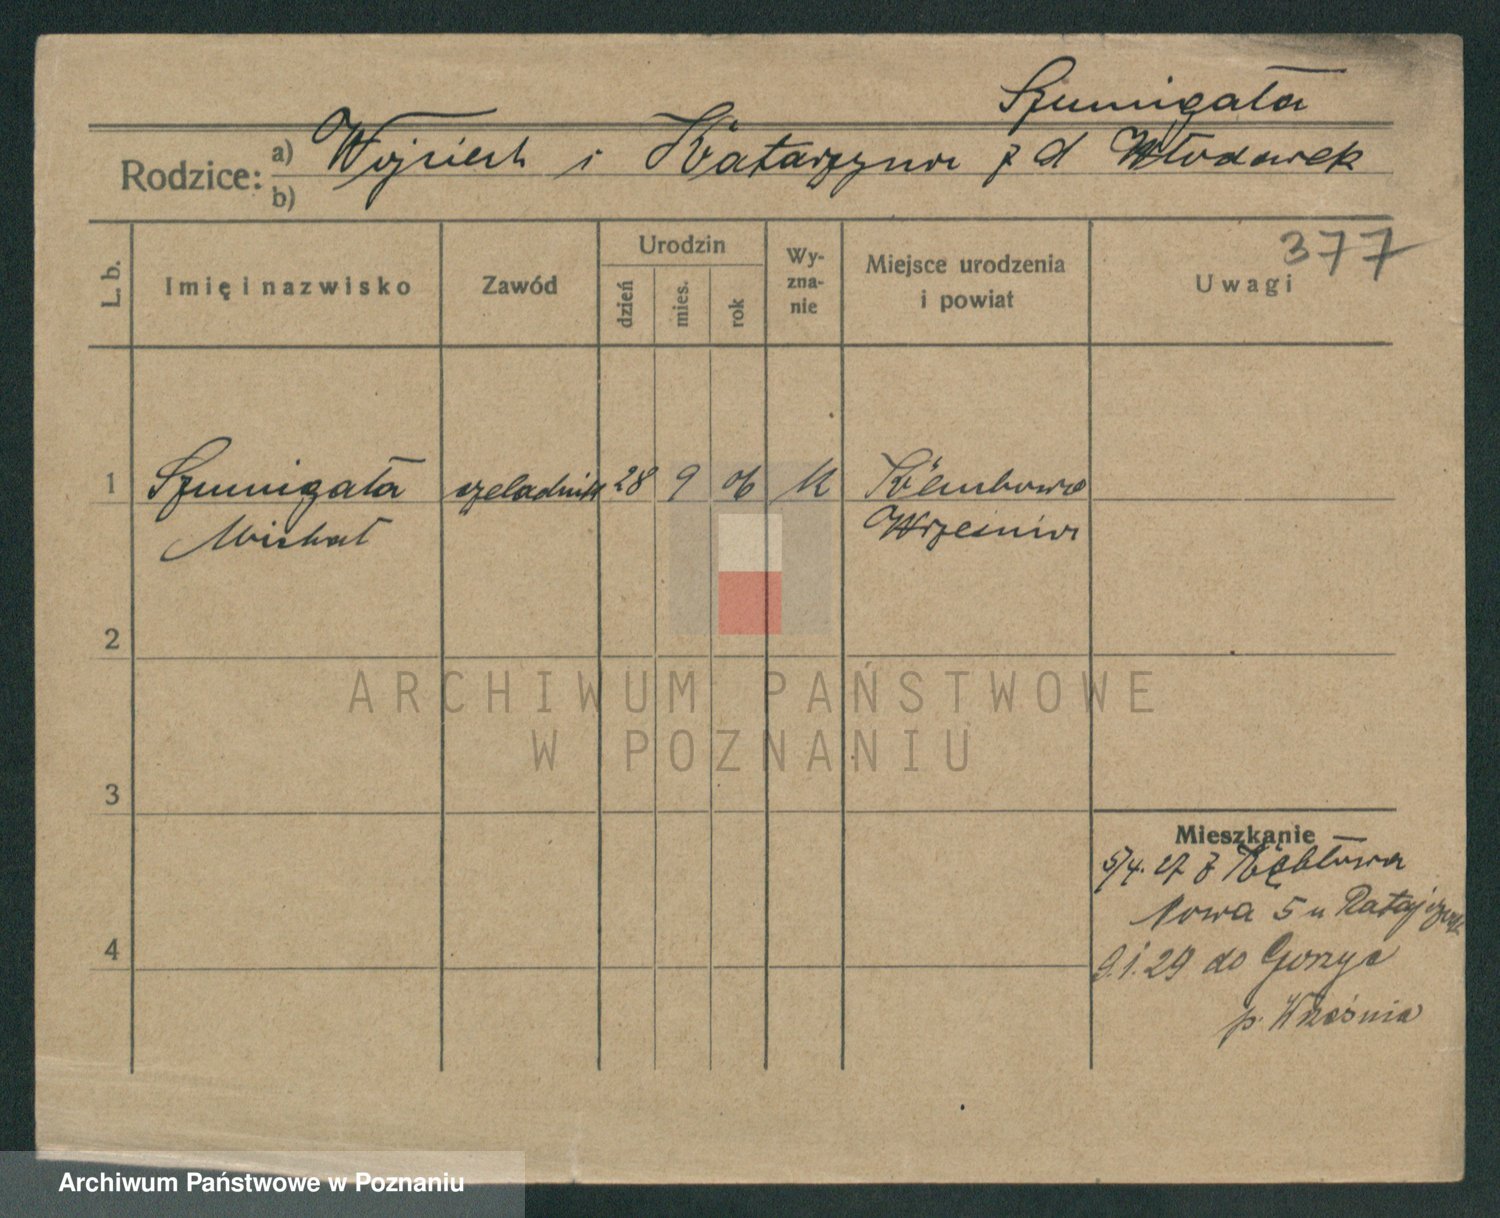 Szumigała
Rodzice: a) Wojciech i Katarzyna z d Włodarek
b)
377
L. b.
Imię i nazwisko
Zawód
Urodzin
dzień
mies.
rok
Wy-
zna-
nie
Miejsce urodzenia
i powiat
Uwagi
1 Szumigała czeladnik 28 9 06 k Kembowo
Michał Września
2
3
4
ARCHIWUM PAŃSTWOWE
W POZNANIU
Mieszkanie
5/4. 27 z
Nowa 5 u Ratajczak
9.1.29 do Gorzyc
p. Września
Archiwum Państwowe w Poznaniu